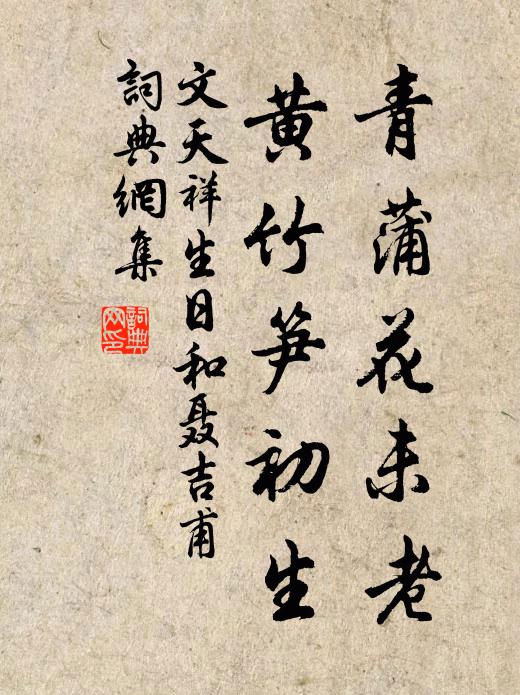 青蒲花未老
黄竹笋初生
文天祥生日和聂吉甫
詞典網集
詞典网印